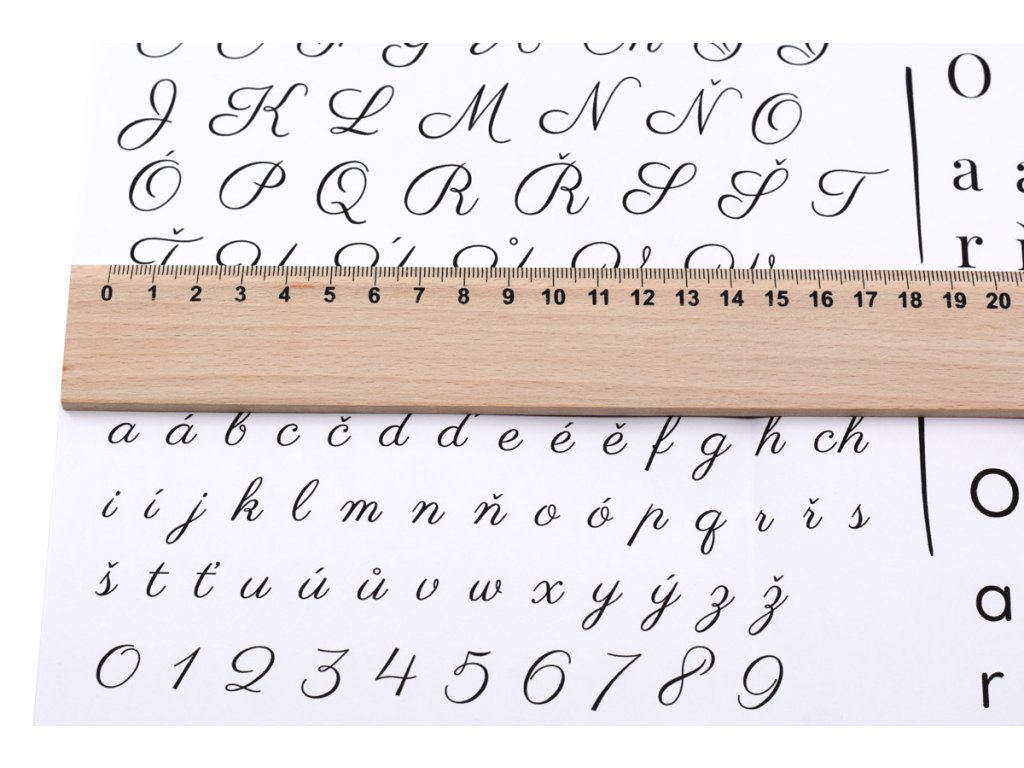 J K L M N Ň O
Ó P Q R Ř S Š T
0 1 2 3 4 5 6 7 8 9 10 11 12 13 14 15 16 17 18 19 20
a á b c č d ď e é ě f g h ch
i í j k l m n ň o ó p q r ř s
š t ť u ú ů v w x y ý z ž
0 1 2 3 4 5 6 7 8 9
O
a
r
O
a
r